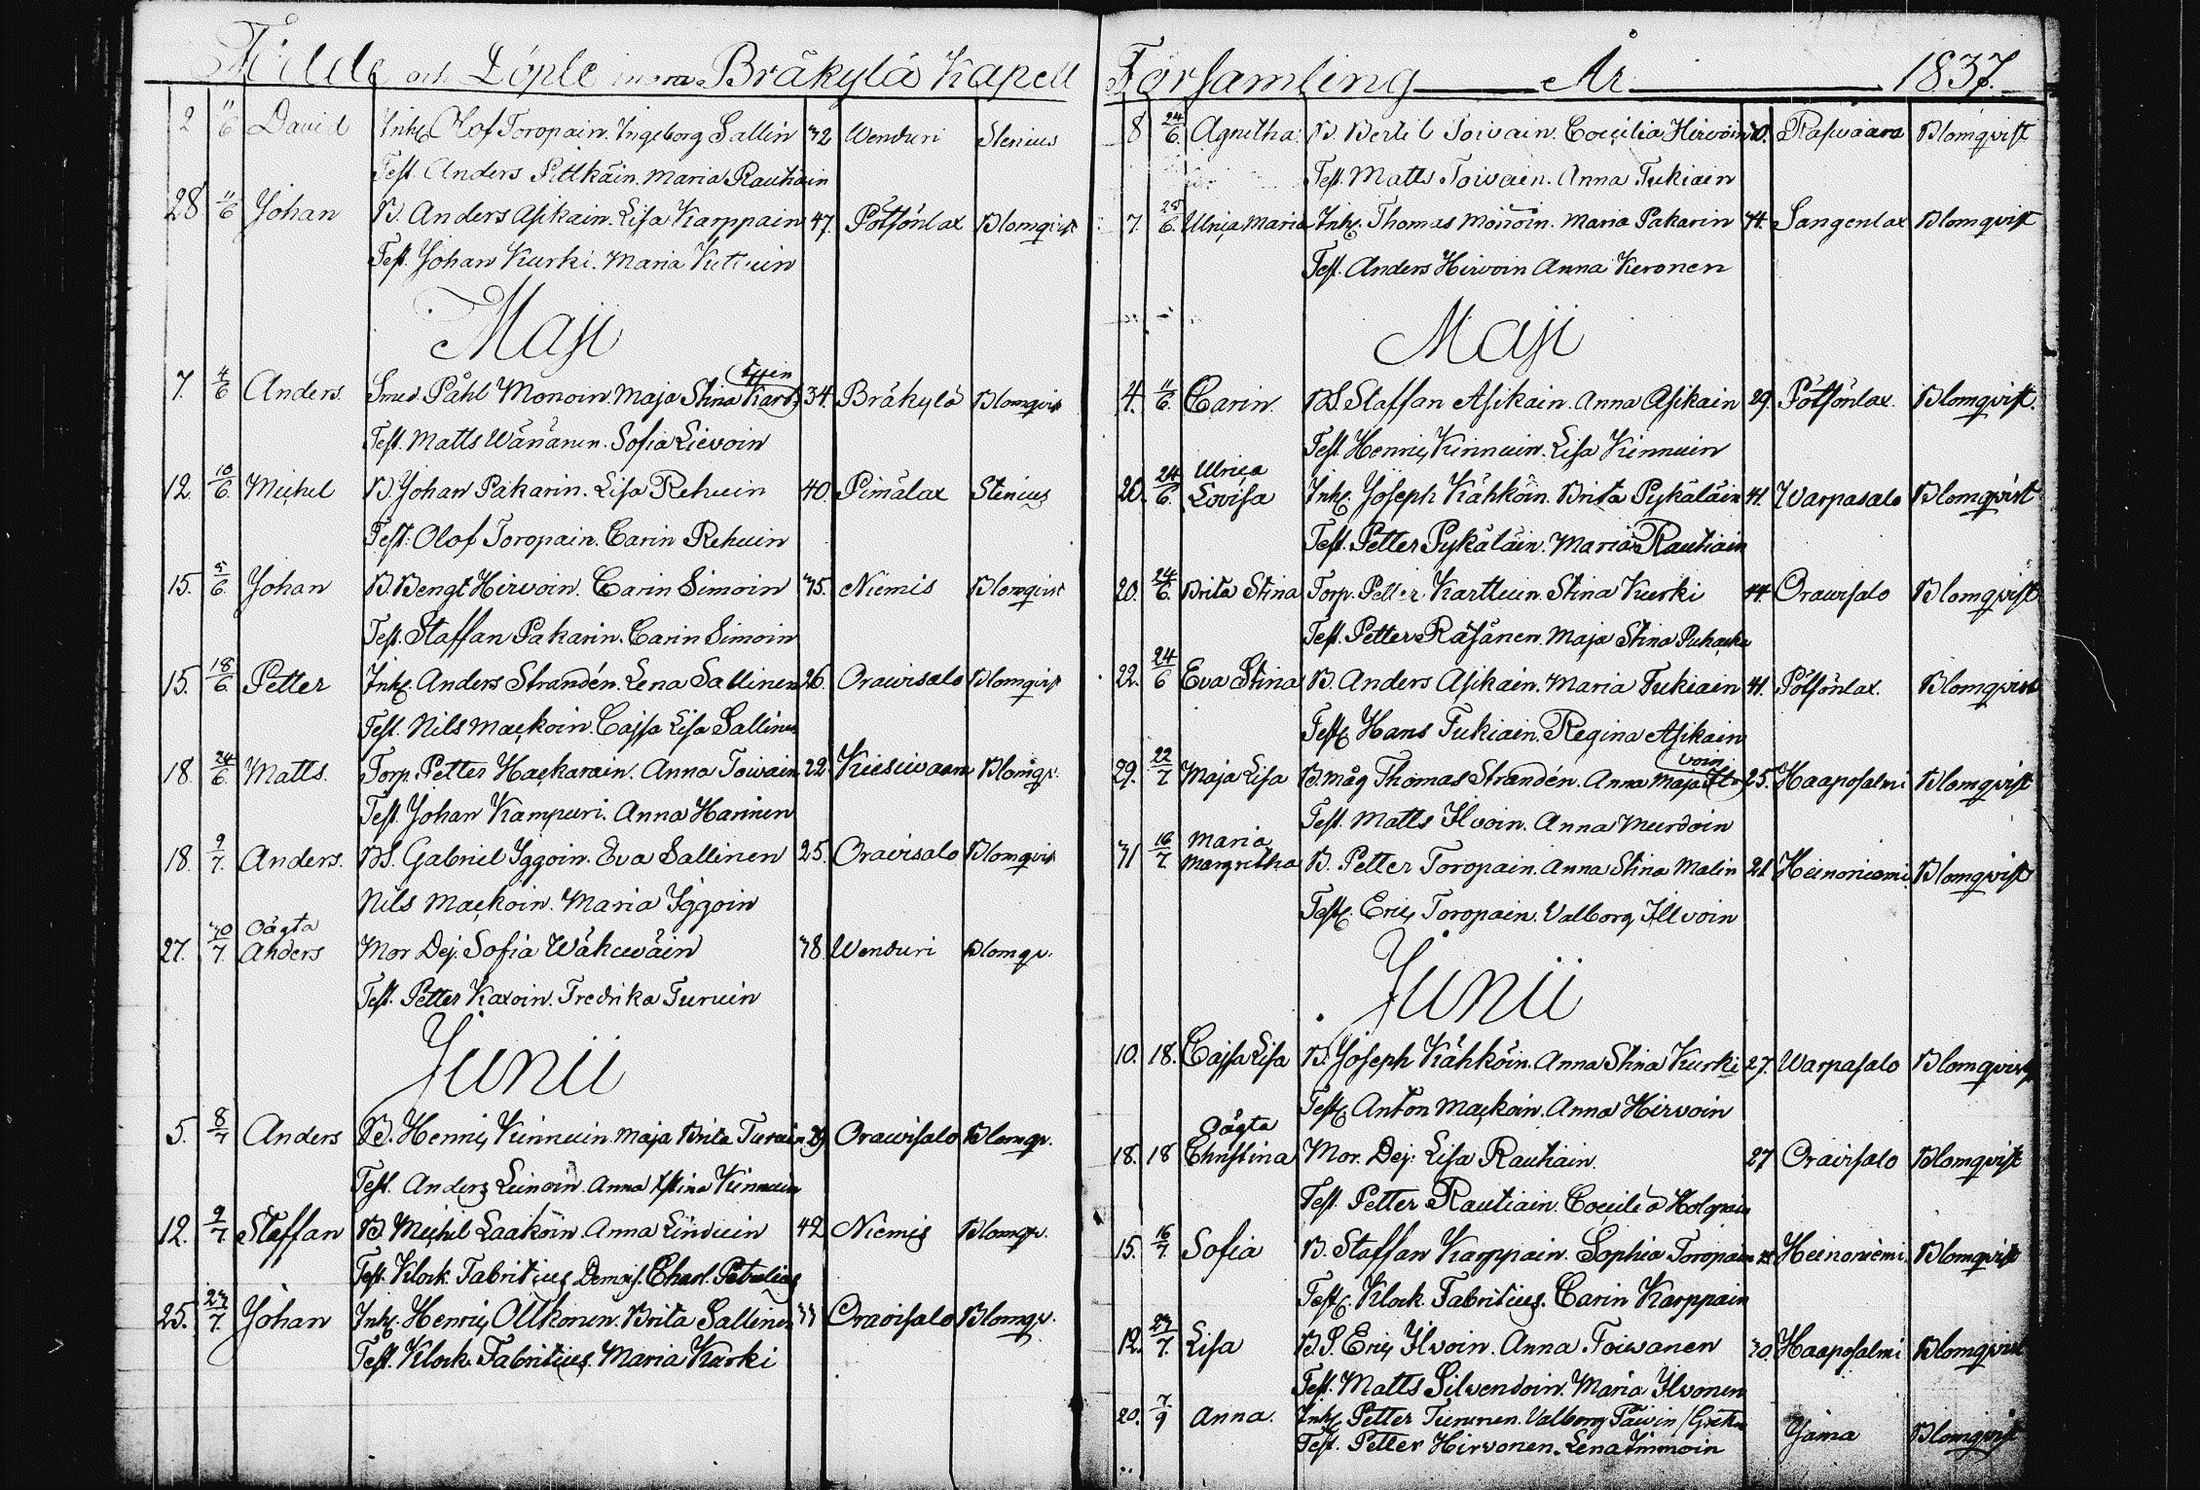 Födde och Döpte inom Bräkylä Kapell
2 11/6 David Inh. Olof Toropain. Ingeborg Sallin 32 Wenduri Stenius
Test. Anders Pittkäin. Maria Rautiain
28 11/6 Johan B. Anders Asikain. Lisa Karppain 47. Pötsönlax Blomqvist
Test. Johan Kurki. Maria
Maji
7. 4/6 Anders. Smed. Påhl Monoin. Maja Stina Kart ttuen 34. Bräkylä Blomqvist
Test. Matts Wänänen. Sofia Lievoin
12. 10/6 Michel B. Johan Pakarin. Lisa Rehuin 40. Pimälax Stenius
Test: Olof Toropain. Carin Rehuin
15. 5/6 Johan B. Bengt Hirvoin. Carin Simoin 35. Niemis Blomqvist
Test. Staffan Pakarin. Carin Simoin
15. 18/6 Petter Inh. Anders Strandén. Lena Sallinen 26. Orawisalo Blomqvist
Test. Nils Mackoin. Cajsa Lisa Sallinen
18. 24/6 Matts. Torp. Petter Hackarain. Anna Toivain 22 Kiesiwaara Blomqv.
Test. Johan Kampuri. Anna Harinen
18. 9/7. Anders. BS. Gabriel Iggoin. Eva Sallinen 25. Oravisalo Blomqvist
Nils Mackoin. Maria Iggoin
27. 30/7. Oägta Anders Mor Dej. Sofia Wäkewäin 38. Wenduri Blomqv.
Test. Petter Kaxoin. Fredrika Turuin
Junii
5. 8/7 Anders B. Henric Kinnuin. Maja Brita Turuin 29 Orawisalo Blomqv.
Test. Anders Leinoin. Anna Stina Kinnuin
12. 9/7 Staffan B. Michel Laakoin. Anna Linduin 42 Niemis Blomqv.
Test. Klock. Fabritius Demois. Charl. Petrelius
25. 23/7. Johan Inh. Henric Oltkonen. Brita Sallinen 33 Oravisalo Blomqv.
Test. Klock. Fabritius. Maria Kurki
Församling År 1837.
8 24/6. Agnitha. B. Bertil Toivain. Coecilia Hirvoin 30. Rasiwaara Blomqvist
Test. Matts Toivain. Anna Tukiain
7. 25/6. Ulrica Maria Inh. Thomas Moinoin. Maria Pakarin 34. Sangenlax Blomqvist
Test. Anders Hirvoin Anna Keronen
Maji
4. 11/6. Carin. BS. Staffan Asikain. Anna Asikain 29. Pötsönlax. Blomqvist.
Test. Henric Kinnuin. Lisa Kinnuin
20. 24/6. Ulrica Lovisa Inh. Joseph Kähköin. Brita Pykäläin 41. Warpasalo Blomqvist
Test. Petter Pykäläin. Maria Rautiain
20. 24/6. Brita Stina Torp. Petter Karttuin. Stina Kurki 44. Orawisalo Blomqvist
Test. Petter Räsänen. Maja Stina Puhacka
22. 24/6 Eva Stina B. Anders Asikain. Maria Tukiain 41. Pötsönlax. Blomqvist
Test. Hans Tukiain. Regina Asikain
29. 22/7 Maja Lisa B. måg Thomas Strandén. Anna Maja Il voin 25. Haaposalmi Blomqvist
Test. Matts Ilvoin. Anna Muurdoin
31 16/7 Maria Margritha B. Petter Toropain. Anna Stina Malin 21. Heinoniemi Blomqvist
Test. Eric Toropain. Valborg Illvoin
Junii
10. 18. Cajsa Lisa B. Joseph Kähköin. Anna Stina Kurki 27. Warpasalo Blomqvist
Test. Anton Mackoin. Anna Hirvoin
18. 18 Oägta Christina Mor. Dej. Lisa Rautiain. 27 Oravisalo Blomqvist
Test. Petter Rautiain. Coecilia Holopain
15. 16/7. Sofia B. Staffan Karppain. Sophia Toropain Heinoniemi. Blomqvist
Test. Klock. Fabritius. Carin Karppain
12. 23/7. Lisa B.S. Eric Ilvoin. Anna Toiwanen 30. Haaposalmi Blomqvist
Test. Matts Silvendoin. Maria Ilvonen
20. 7/9 Anna. Inh. Petter Turunen. Valborg Päivin /Grek. Jama Blomqvist
Test. Petter Hirvonen. Lena Immoin